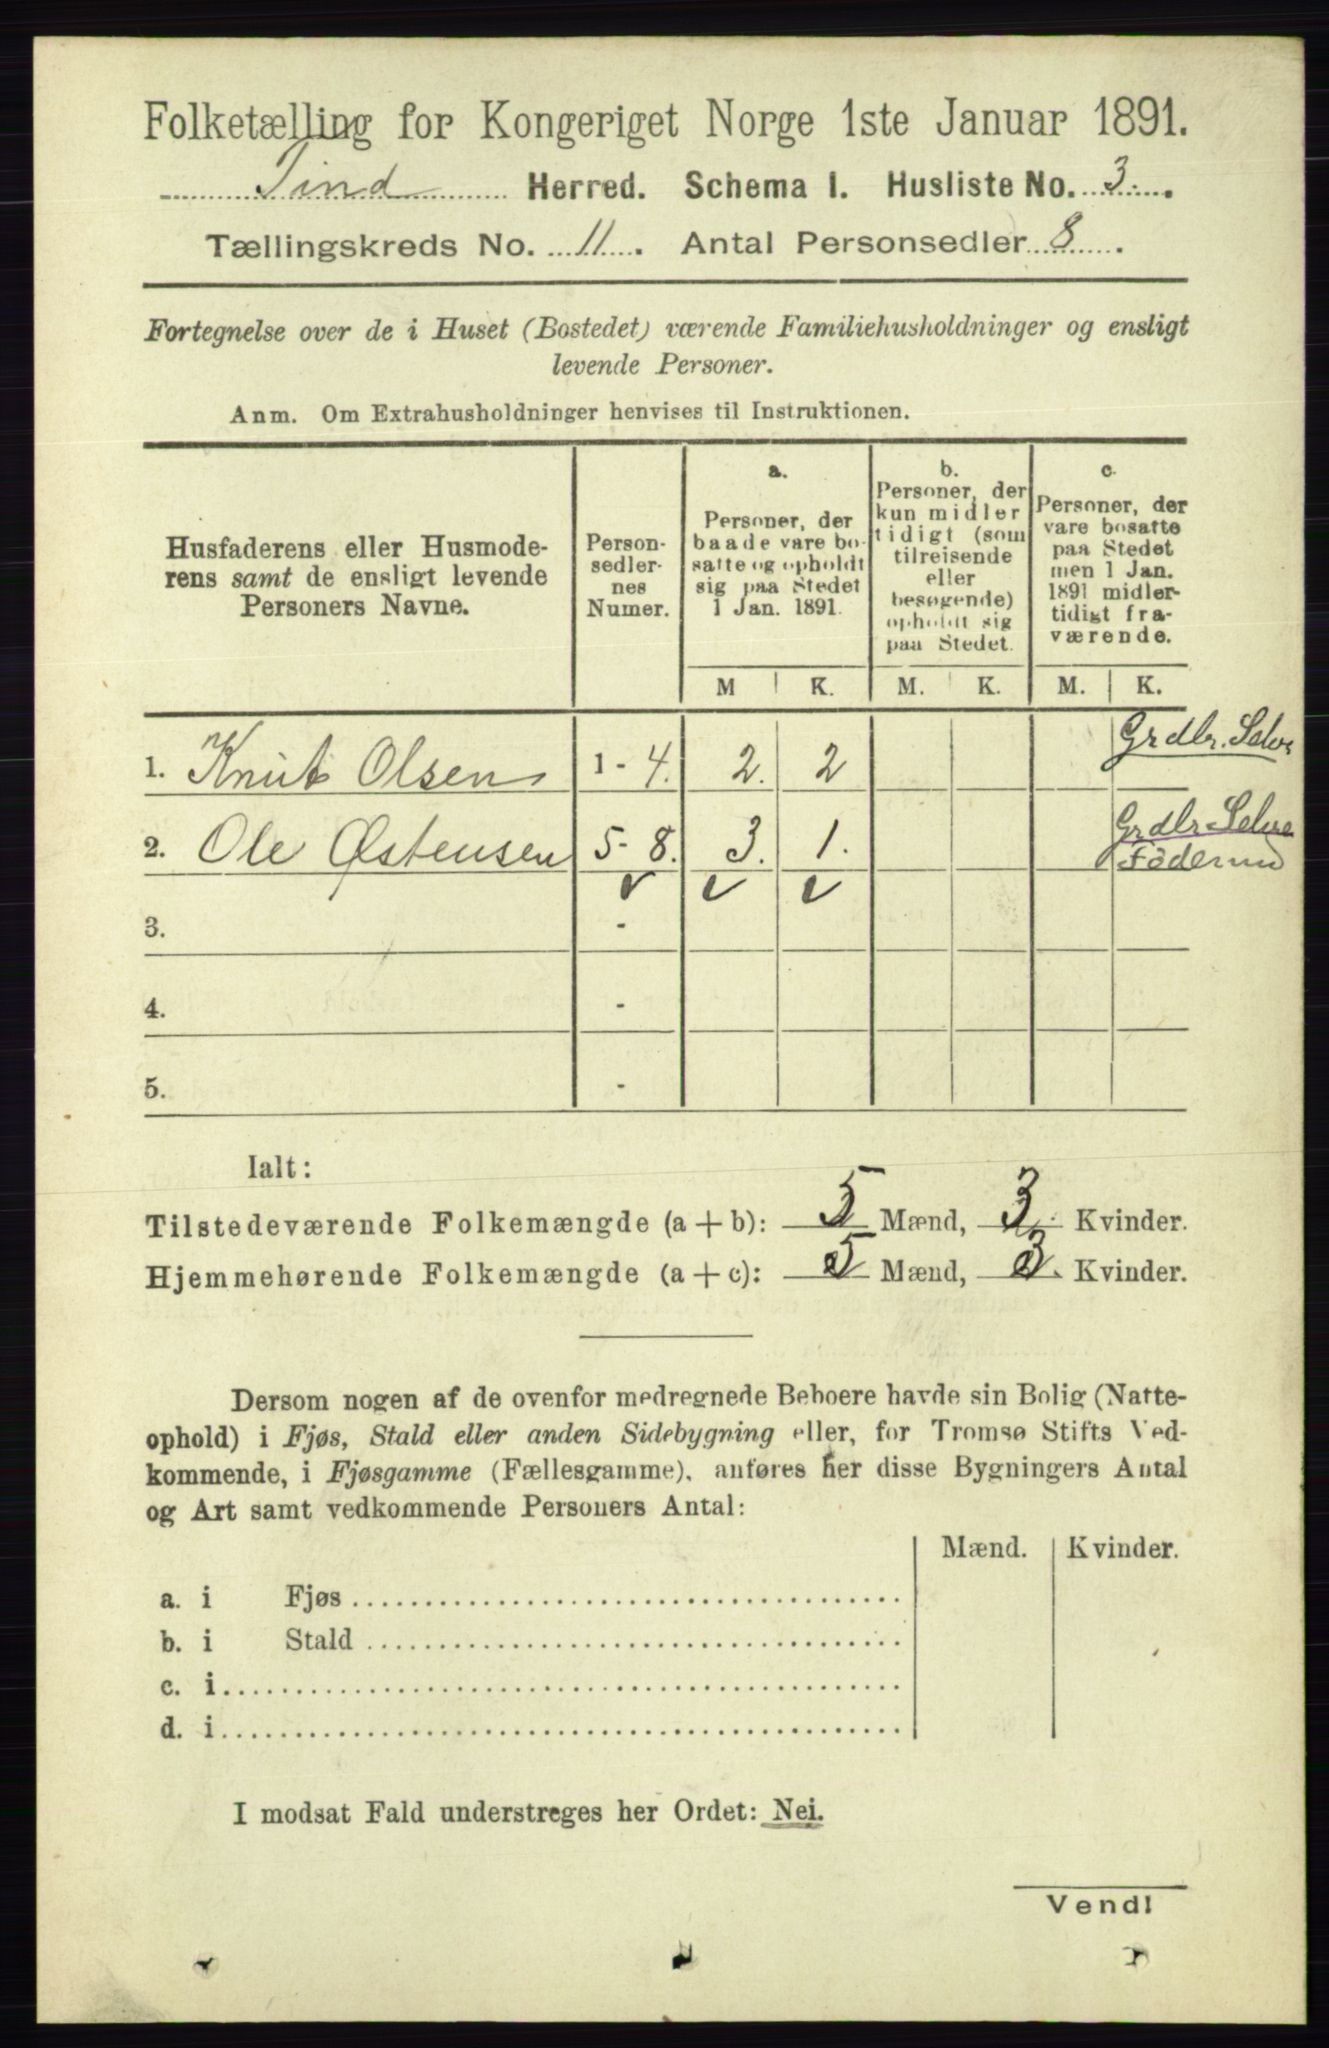 Folketælling for Kongeriget Norge 1ste Januar 1891.
Tind Herred. Schema I. Husliste No. 3.
Tællingskreds No. 11. Antal Personsedler 8.
Fortegnelse over de i Huset (Bostedet) værende Familiehusholdninger og ensligt
levende Personer.
Anm. Om Extrahusholdninger henvises til Instruktionen.
Husfaderens eller Husmode-
rens samt de ensligt levende
Personers Navne.
Person-
sedler-
nes
Numer.
a.
Personer, der
baade vare bo-
satte og opholdt
sig paa Stedet
1 Jan. 1891.
b.
Personer, der
kun midler
tidigt (som
tilreisende
eller
besøgende)
opholdt sig
paa Stedet.
c.
Personer, der
vare bosatte
paa Stedet
men 1 Jan.
1891 midler-
tidigt fra-
værende.
M K. M. K. M. K.
1. Knut Olsen 1 - 4. 2. 2 Grdbr. Selve
2. Ole Østensen 5 - 8. 3. 1. Grdbr Selve
Föderaad
3. -
4. -
5. -
Ialt:
Tilstedeværende Folkemængde (a + b): 5 Mænd, 3. Kvinder.
Hjemmehørende Folkemængde (a + c): 5 Mænd, 3. Kvinder.
Dersom nogen af de ovenfor medregnede Beboere havde sin Bolig (Natte-
ophold) i Fjøs, Stald eller anden Sidebygning eller, for Tromsø Stifts Ved-
kommende, i Fjøsgamme (Fællesgamme), anføres her disse Bygningers Antal
og Art samt vedkommende Personers Antal:
Mænd. Kvinder.
a. i Fjøs
b. i Stald
c. i
d. i
I modsat Fald understreges her Ordet: Nei.
Vend!